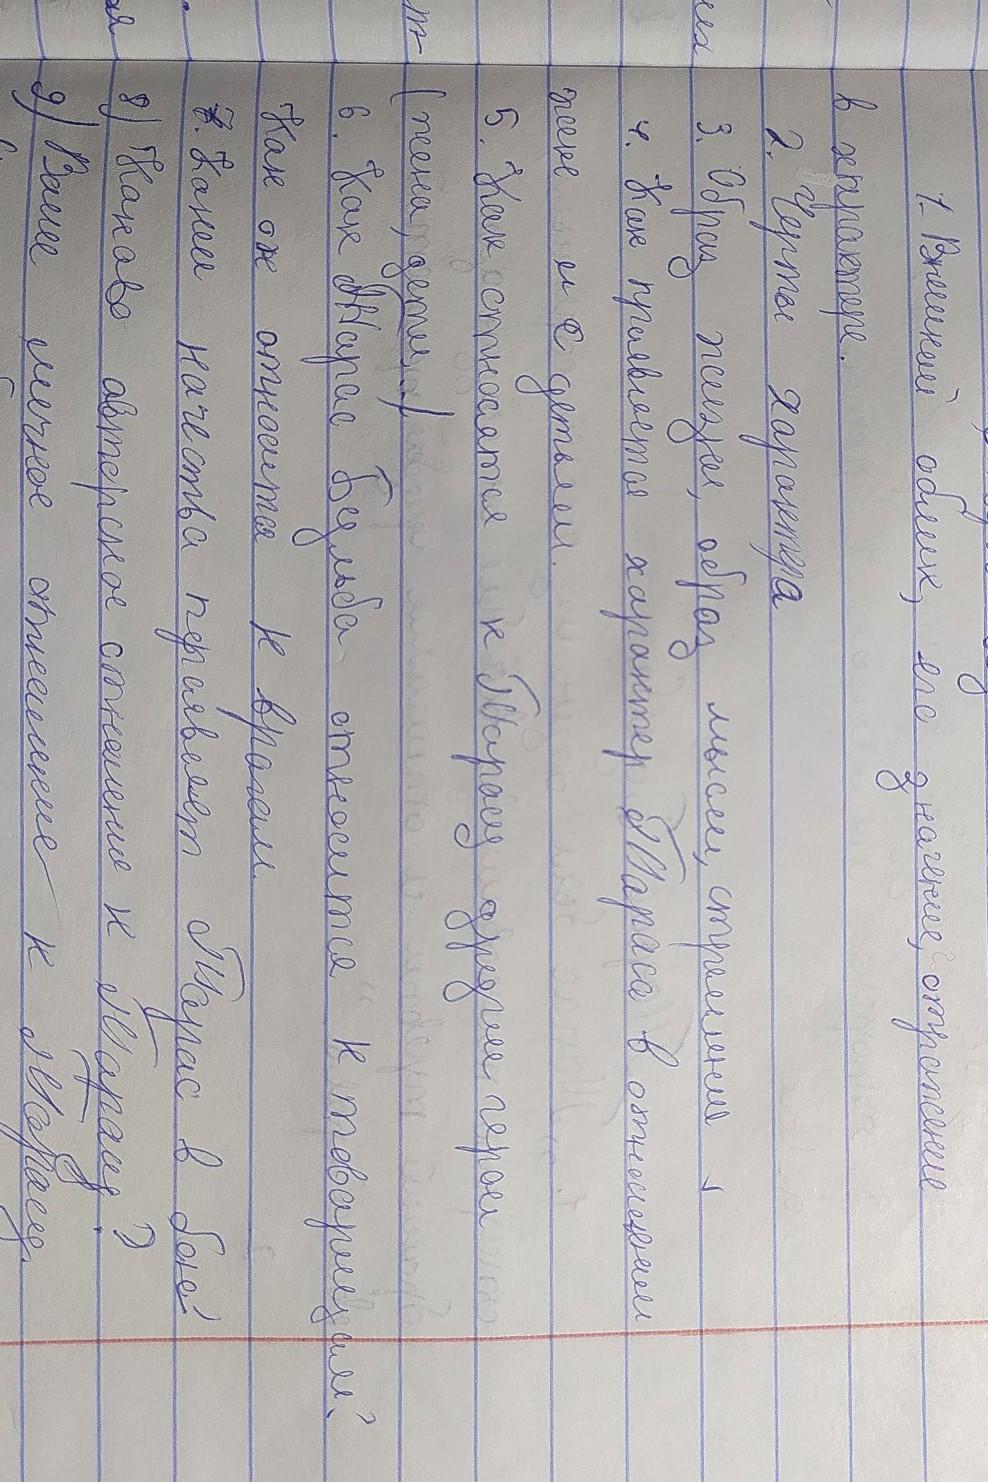 1. Внешний облик, его значение, отражение
в характере.
2. Черты характера
3. Образ жизни, образ мысли, стремления
4. Как проявляется характер Тараса в отношении к
жене и с детьми.
5. Как относятся к Тарасу другие герои
(жена, дети.)
6. Как Тарас Бульба относится к товарищам?
Как он относится к врагам
7. Какие качества проявляет Тарас в бою?
8) Каково авторское отношение к Тарасу?
9) Ваше личное отношение к Тарасу.